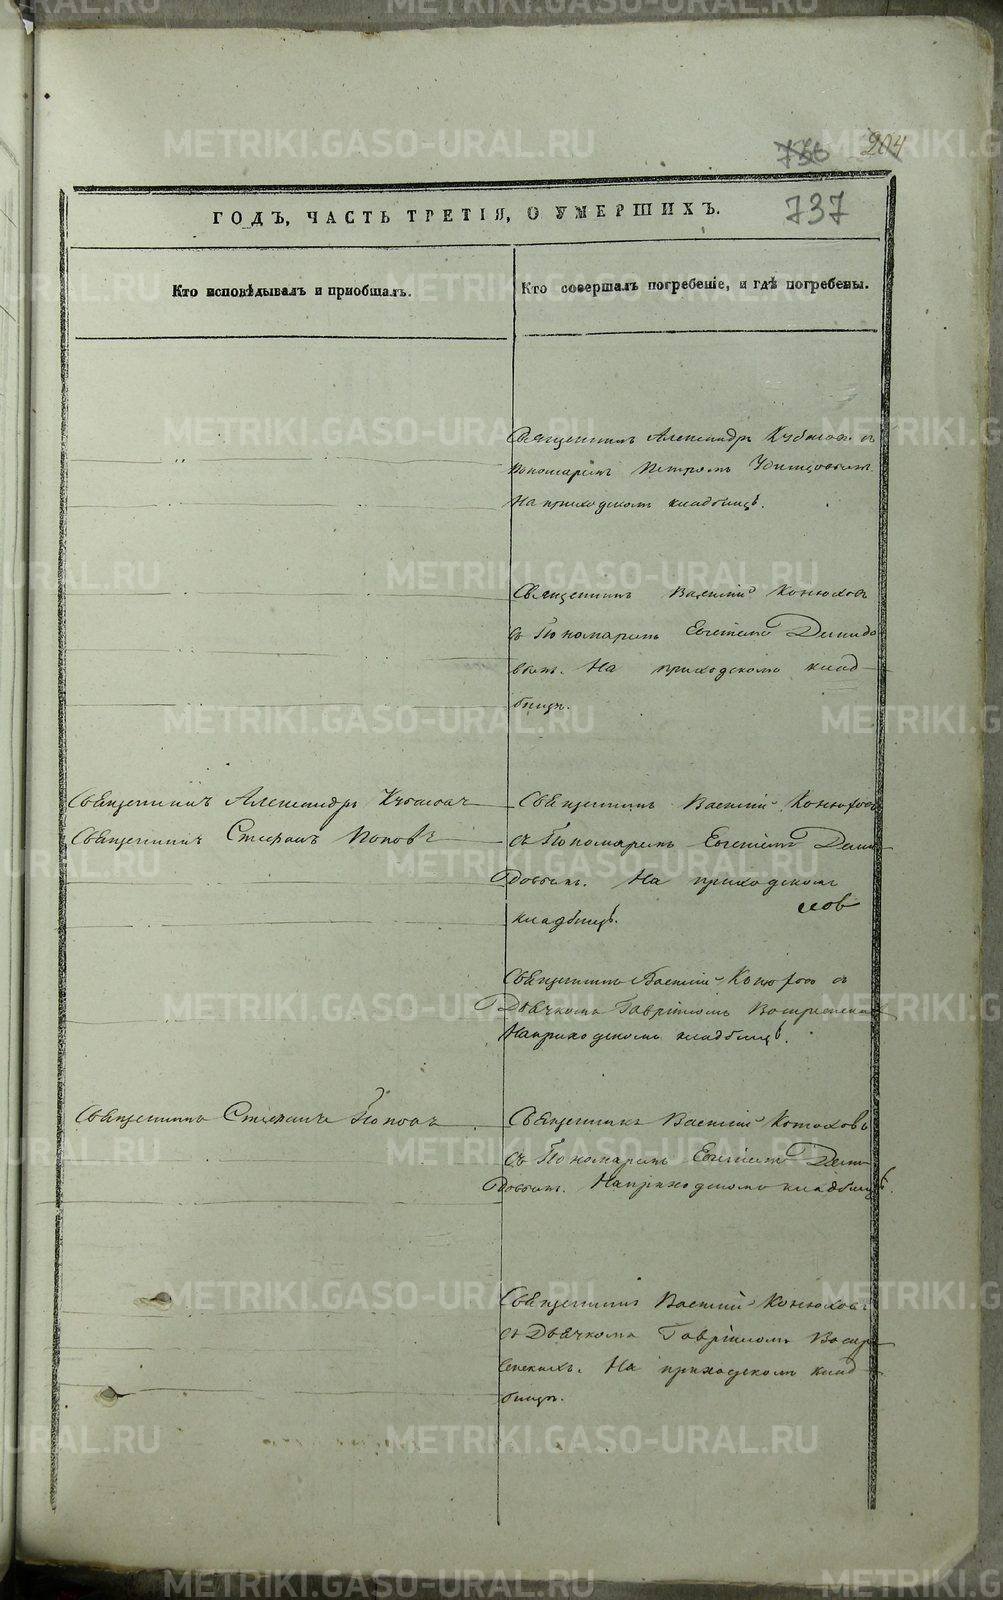 METRIKI.GASO-URAL.RU
204
736
737
ГОДЪ, ЧАСТЬ ТРЕТІЯ, О УМЕРШИХЪ.
Кто исповѣдывалъ и пріобщалъ.
Кто совершалъ погребеніе, и гдѣ погребены.
Священникъ Александръ съ
пономаремъ Петромъ
На приходскомъ кладбищѣ.
Священникъ Василій Конюховъ
съ Пономаремъ Евгеніемъ Демидо
вымъ. На приходскомъ клад
бищѣ.
Священникъ Александръ
Священникъ Стефанъ Поповъ
Священникъ Василій Конюховъ
съ Пономаремъ Евгеніемъ Деми
довымъ. На приходскомъ
кладбищѣ.
Священникъ Василій Конюховъ съ
Дьячкомъ Гавріиломъ
На приходскомъ кладбищѣ.
Священникъ Стефанъ Поповъ
Священникъ Василій Конюховъ
съ Пономаремъ Евгеніемъ Деми
довымъ. На приходскомъ кладбищѣ.
Священникъ Василій Конюховъ
съ Дьячкомъ Гавріиломъ
На приходскомъ клад
бищѣ.